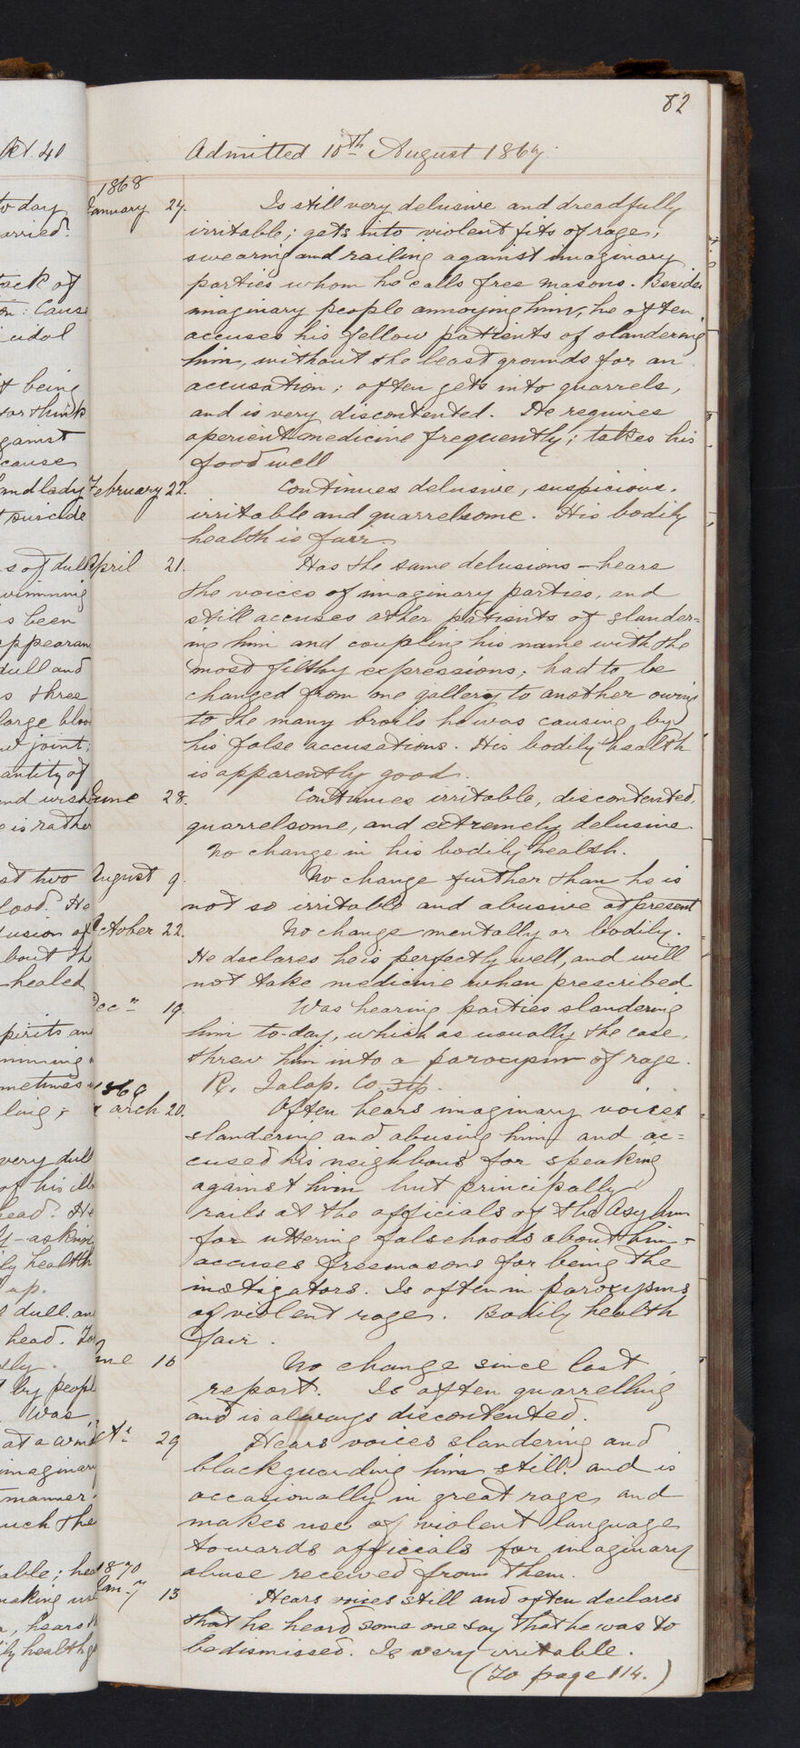 82
Admitted 10th August 1867.
1868
January 24. Is still very delusive and dreadfully
irritable; gets into violent fits of rage,
swearing and railing against imaginary
parties whom he calls free masons. Besides
imaginary people annoying him, he often
accuses his fellow patients of slandering
him, without the least grounds for an
accusation; often gets into quarrels,
and is very discontented. He requires
aperient medicine frequently; takes his
food well
February 22. Continues delusive, suspicious,
irritable and quarrelsome. His bodily
health is fair
April 21. Has the same delusions – hears
the voices of imaginary parties, and
still accuses other patients of slander=
ing him and coupling his name with the
most filthy expressions; had to be
changed from one gallery to another owing
to the many broils he was causing by
his false accusations. His bodily health
is apparently good.
June 28. Continues irritable, discontented,
quarrelsome, and extremely delusive.
No change in his bodily health.
August 9. No change further than he is
not so irritable and abusive at present
October 22. No change mentally or bodily.
He declares he is perfectly well, and will
not take medicine when prescribed
Decr 19. Was hearing parties slandering
him to-day, which as usually the case,
threw him into a paroxysm of rage.
R. Jalap. Co
1869
March 20. Often hears imaginary voices
slandering and abusing him and ac=
cused his neighbours for speaking
against him but principally
rails at the officials of the Asylum
for uttering falsehoods about him -
accuses freemasons for being the
instigators. Is often in paroxysms
of violent rage. Bodily health
fair.
June 16 No change since last
report. Is often quarrelling
and is always discontented.
Oct. 29 Hears voices slandering and
blackguarding him still and is
occasionally in great rage and
makes use of violent language
towards officials for imaginary
abuse received from them.
1870
Jan.y 13 Hears voices still and often declares
that he heard some one say that he was to
be dismissed. Is very irritable.
(To page 114.)